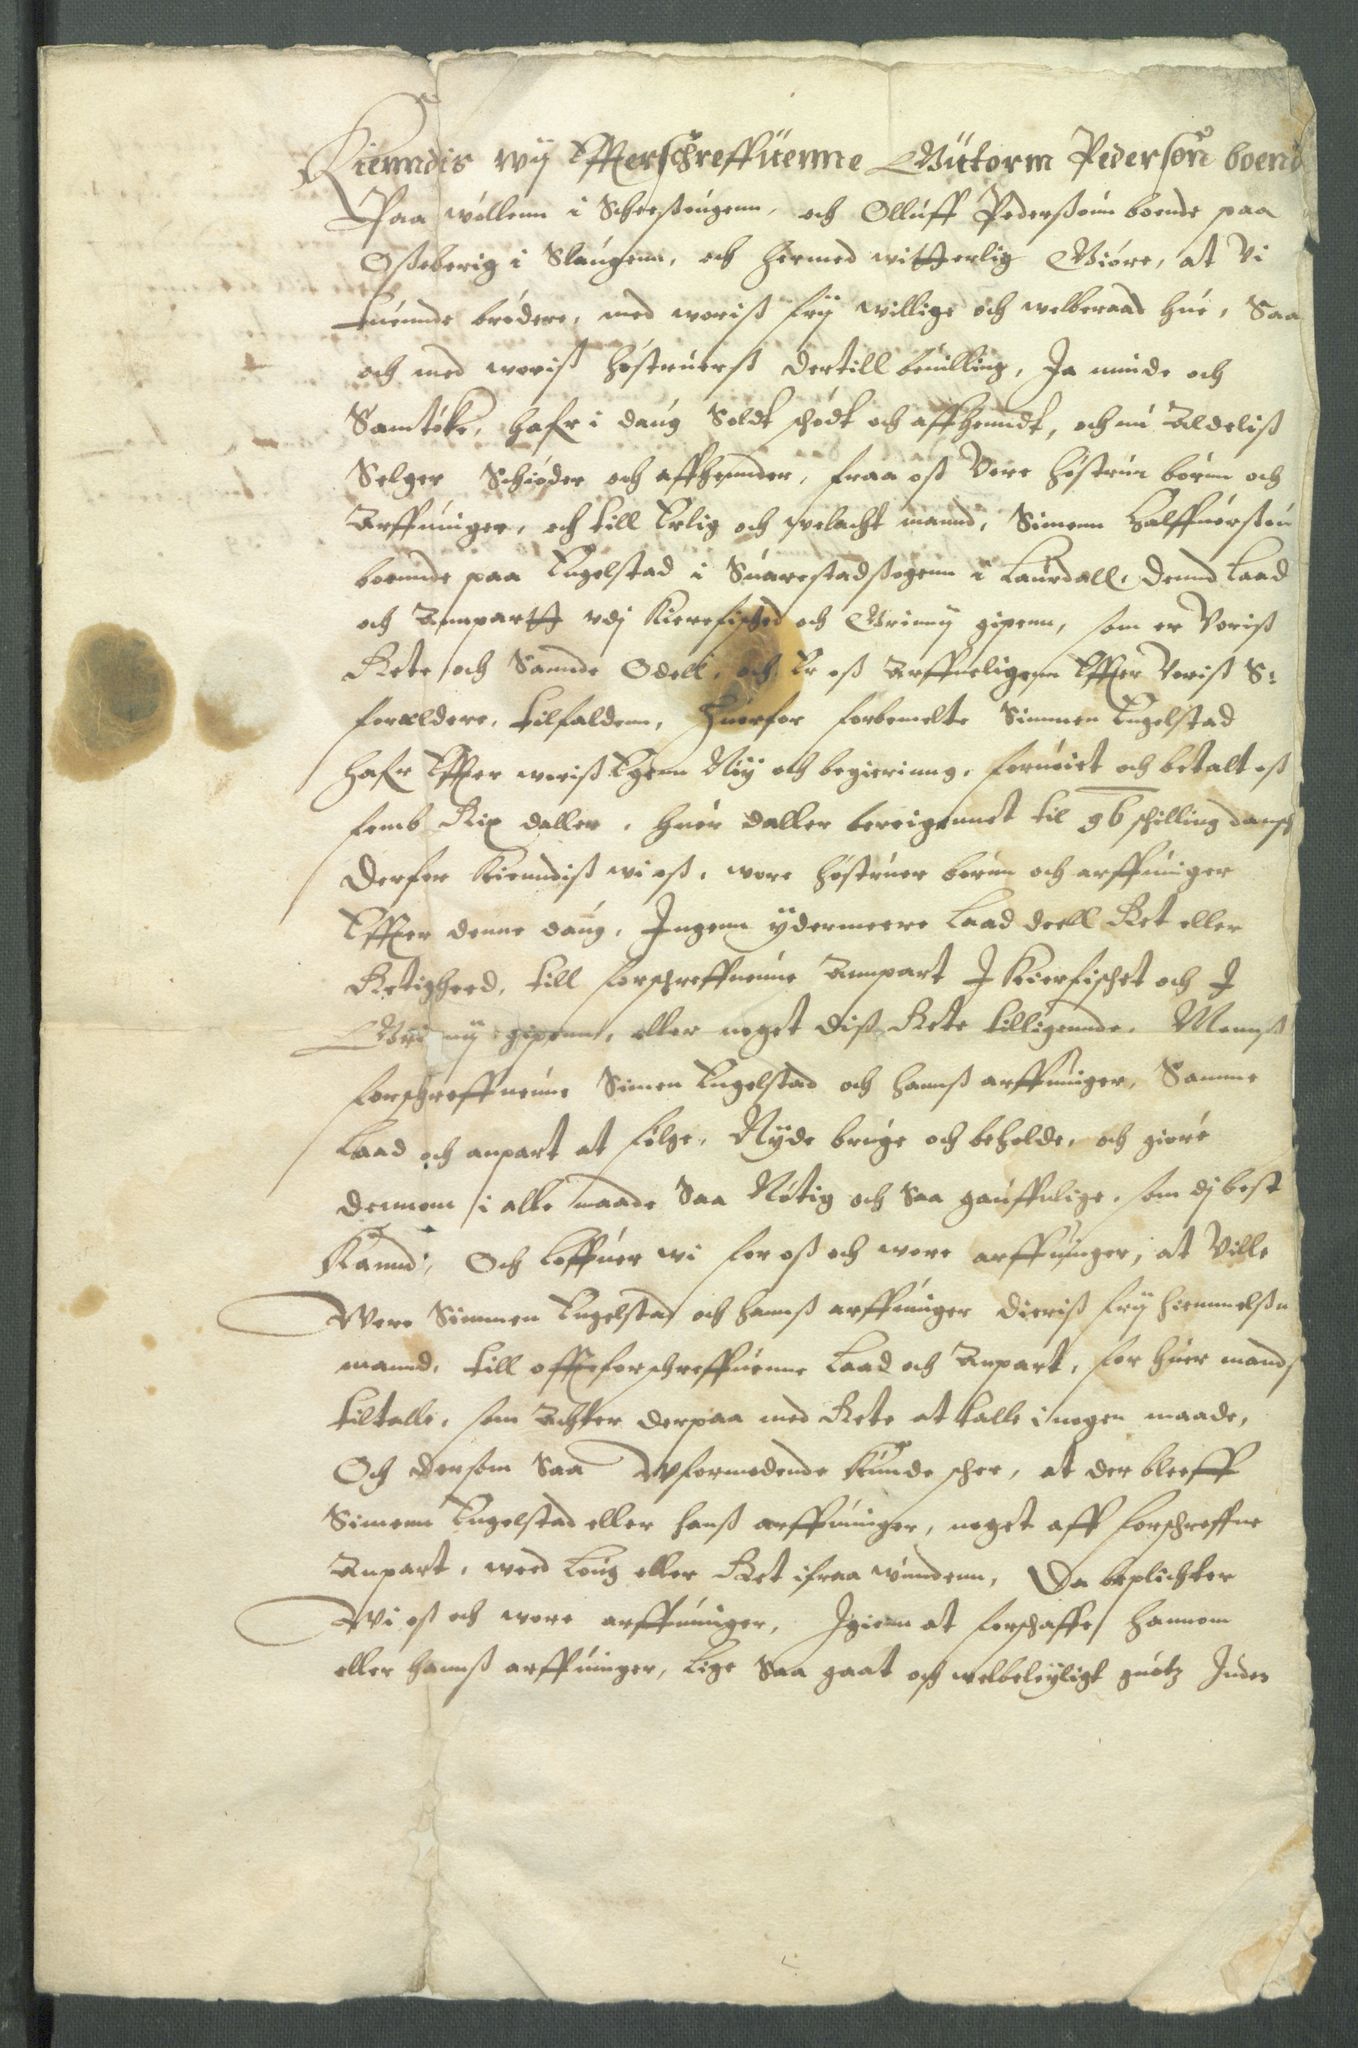 Kienndis wij Effterschreffuenne Guttorm Pedersøn boend
Paa wollenn i Scheeßougenn, och Olluff Pederßøn boende paa
Oßeberig i Slaugenn, och hermed witterlig Giøre, at Vi
tuennde brødere, med woriß frij willige och welberaad hue, Saa
och med woriß høstruerß dertill beuilling, Ja minde och
Samtøke, hafr i daug Soldt schødt och affhenndt, och nu Aldeliß
Selger Schiøder och affhennder, fraa oß Vore høstruer børnn och
Arffuinger, och till Erlig och welacht mannd, Simenn Halffuorßøn
boennde paa Engelstad i Suarestadßogenn i Laurdall, dennd Laad
och Annpartt vdj Kierefisched och Grinnij gipenn, som er Voriß
Rete och Sannde Odell, och Er oß Arffueligenn Effter Voriß S:
forældere, tilfaldenn, huorfor forbemelte Simmen Engelstad
hafr Effter woriß Egenn Nøy och begierinng, fornøiet och betalt oß
femb Rix daller, huer daller beregnnet til 96 schilling dansch
derfor Kienndiß wi oß, wore høstruer børnn och arffuinger
Effter denne daug, Ingenn ydermeere Laad deell Ret eller
Retigheed, till forschreffuenne Annpart I Kierfischet och I
Grinnij gipenn, eller noget diß Rete tilligennde, Mennß
forschreffuenne Simen Engelstad och hannß arffuinger, Samme
Laad och anpart at følge, Nyde bruge och beholde, och giøre
dennom i alle maade Saa Nøtig och Saa gauffnlige, som dj best
Kannd, Och Loffuer wi for oß och wore arffuinger, at Ville
Were Simmen Engelstad och hannß arffuinger dieriß frij hiemmelßn
mannd, till offteforschreffuenne Laad och Anpart, for huer mands
tiltalle, som Achter derpaa med Rete at talle i nogen maade,
Och dersom Saa Wformodende Kunde schee, at der bleeff
Simenn Engelstad eller hanß arffuinger, noget aff forschreffne
Anpart, weed Loug eller Ret ifraa wundenn, Da beplichter
Wi oß och wore arffuinger, Igienn at forschaffe hannom
eller hannß arffuinger, lige Saa gaat och welbeleyligt guotz Inden